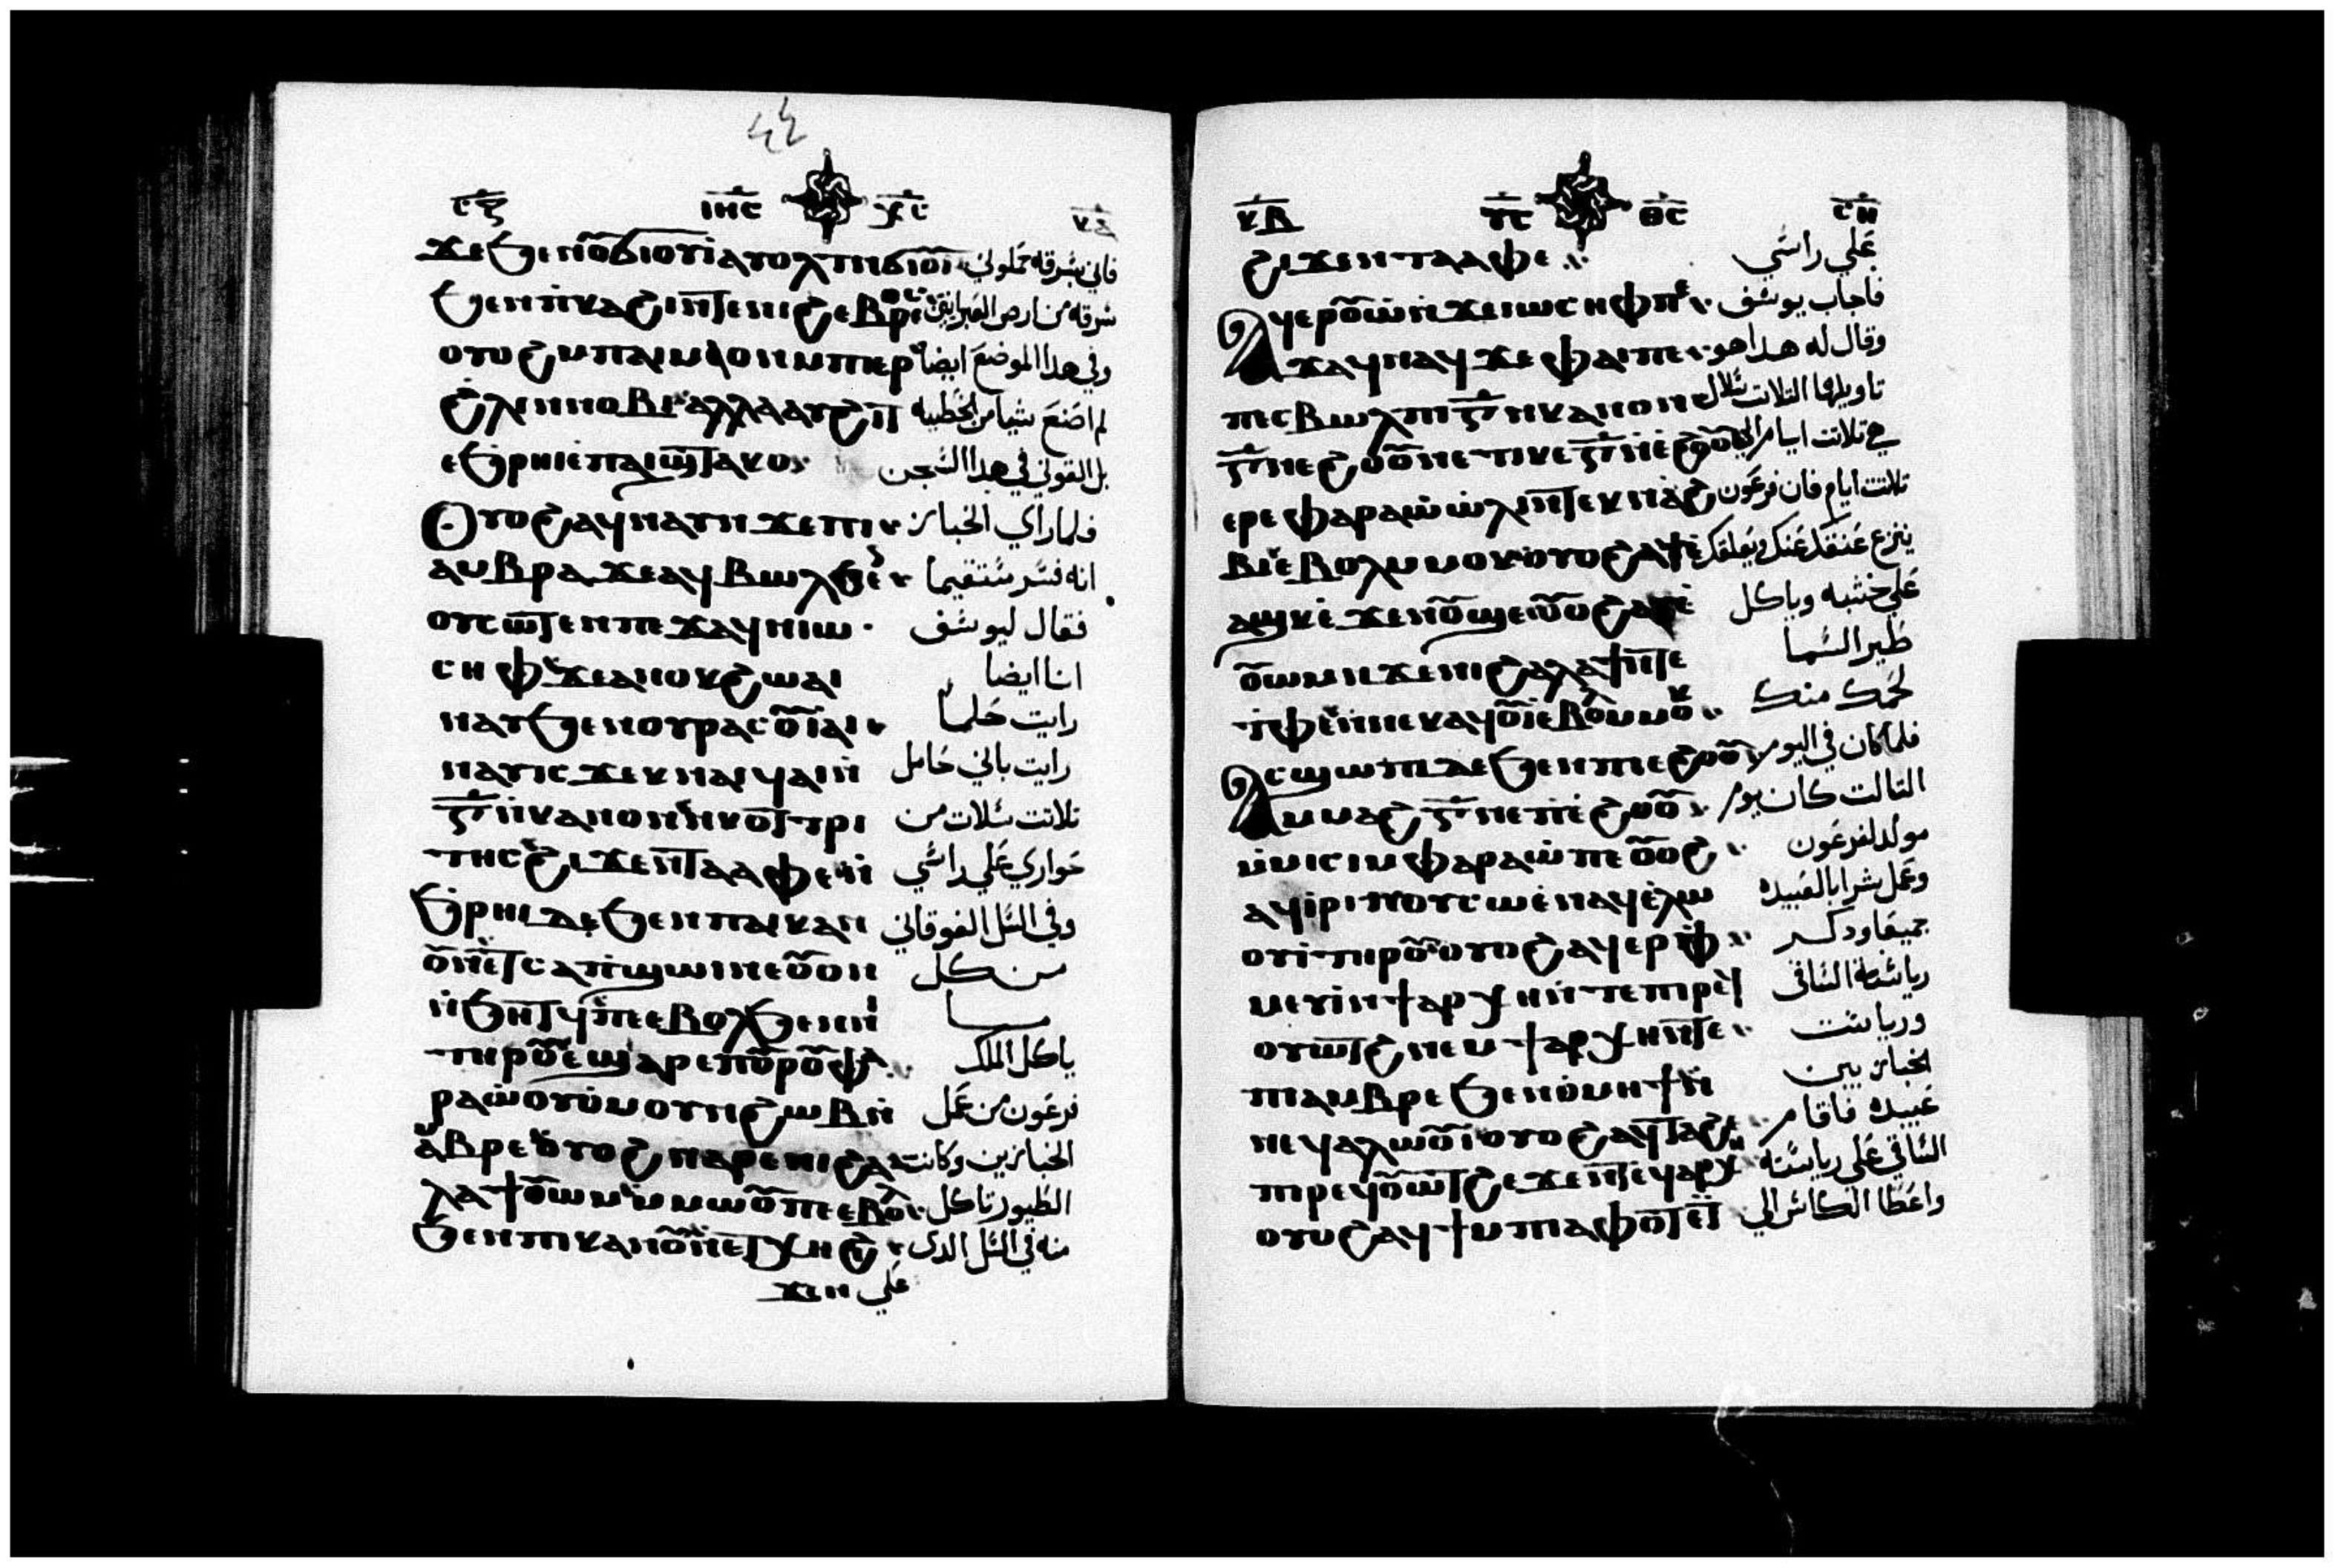 ٤٤
ⲥⲍ ⲓⲏⲥ ⲭⲥ
ϫⲉϧⲉⲛⲟⲩϭⲓⲟⲩⲓ ⲁⲩⲟⲗⲧ ⲛϭⲓⲟⲩⲓ فاني بسرقه حملوني
ϧⲉⲛⲡⲕⲁϩⲓ ⲛⲧⲉⲛⲓϩⲉⲃⲣⲉⲟⲥ سرقه من ارض العبرانيين
ⲟⲩⲟϩ ⲙⲡⲁⲓⲙⲁ ⲟⲛ ⲙⲡⲉⲣ وفي هدا الموضع ايضا
ϩⲗⲓ ⲛⲛⲟⲃⲓ ⲁⲗⲗⲁ ⲁⲩϩⲓⲧ لم اصنع شيا من الخطيه
ⲉϧⲣⲏⲓ ⲉⲡⲁⲓϣⲧⲁⲕⲟ بل القوني في هدا السجن
ⲟⲩⲟϩ ⲁϥⲛⲁⲩ ⲛϫⲉⲡⲓ فلما راي الخباز
ⲁⲙⲃⲣⲉ ϫⲉⲁϥⲃⲱⲗ ϧⲉⲛ انه فسر مستقيما
ⲟⲩⲥⲱⲟⲩⲧⲉⲛ ⲡⲉϫⲁϥ ⲛⲓⲱ فقال ليوسف
ⲥⲏⲫ ϫⲉⲁⲛⲟⲕ ϩⲱ ⲁⲓ انا ايضا
ⲛⲁⲩ ϧⲉⲛⲟⲩⲣⲁⲥⲟⲩⲓ ⲁⲓ رايت حلما
ⲛⲁⲩⲓⲥ ϫⲉⲕ ⲛⲁⲓϥⲁⲓ ⲛ رايت باني حامل
ⲅ ⲛⲕⲁⲛⲟⲩⲛ ⲛⲕⲟⲛⲧⲣⲓ تلاتت سلات من
ⲧⲏⲥ ϩⲓϫⲉⲛⲧⲁⲁⲫⲉ ⲛ حواري علي راسي
ϧⲣⲏⲓ ⲇⲉ ϧⲉⲛⲡⲁⲓⲕⲁⲛ وفي السل الفوقاني
ⲟⲩⲛ ⲉⲧⲥⲁⲡϣⲱⲓ ⲛⲉⲟⲩⲟⲛ من كل
ⲛϧⲏⲧϥ ⲡⲉ ⲉⲃⲟⲗ ϧⲉⲛⲛⲏ ما
ⲧⲏⲣⲟⲩ ⲉϣⲁⲣⲉⲡⲟⲩⲣⲟ ⲫⲁ ياكل الملك
ⲣⲁⲱ ⲟⲩⲟⲙⲟⲩ ⲛϩⲱⲃ ⲛ فرعون من عمل
ⲁⲙⲃⲣⲉ ⲟⲩⲟϩ ⲛⲁⲣⲉⲛⲓϩⲁ الخبازين وكانت
ⲗⲁϯ ⲟⲩⲱⲙ ⲙⲙⲱⲟⲩ ⲡⲉ ⲉⲃⲟⲗ الطيور تاكل
ϧⲉⲛⲡⲓⲕⲁⲛⲟⲩⲛ ⲉⲧⲭⲏ ϩⲓ منه في السل الدي
ϫⲉⲛ علي
ⲕⲃ ⲩⲥ ⲑⲥ ⲥⲏ
ϩⲓϫⲉⲛⲧⲁⲁⲫⲉ علي راسي
ⲁϥⲉⲣⲟⲩⲱ ⲛϫⲉⲓⲱⲥⲏⲫ ⲡⲉ فاجاب يوسف
ϫⲁϥ ⲛⲁϥ ϫⲉⲫⲁⲓ ⲡⲉ وقال له هدا هو
ⲡⲉϥⲃⲱⲗ ⲡⲓⲅ ⲛⲕⲁⲛⲟⲩⲛ تاويلها التلات سلال
ⲅ ⲛⲉϩⲟⲟⲩ ⲛⲉ ⲧⲓⲕⲉⲅ ⲛⲉϩⲟⲟⲩ هي تلاتت ايام الي
ⲉⲣⲉⲫⲁⲣⲁⲱ ⲱⲗⲓ ⲛⲧⲉⲕⲛⲁϩ تلاتت ايام فان فرعون
ⲃⲓ ⲉⲃⲟⲗ ⲙⲙⲟⲕ ⲟⲩⲟϩ ⲉϥⲉ ينزع عنقك عنك ويعلقك
ⲁϣⲕ ⲉϫⲉⲛⲟⲩϣⲉ ⲟⲩⲟϩ ⲉⲩⲉ علي خشبه وياكل
ⲟⲩⲱⲙ ⲛϫⲉⲛⲓϩⲁⲗⲁϯ ⲛⲧⲉ طير السما
ⲧⲫⲉ ⲛⲛⲉⲕⲁϥⲟⲩⲓ ⲉⲃⲟⲗ ⲙⲙⲟⲕ لحمك منك
ⲁⲥϣⲱⲡⲓ ⲇⲉ ϧⲉⲛⲡⲓⲉϩⲟⲟⲩ فلما كان في اليوم
ⲙⲙⲁϩⲅ ⲛⲉ ⲡⲉϩⲟⲟⲩ التالت كان يوم
ⲙⲙⲓⲥⲓ ⲙⲫⲁⲣⲁⲱ ⲡⲉ ⲟⲩⲟϩ مولد لفرعون
ⲁϥⲓⲣⲓ ⲛⲟⲩⲥⲱ ⲉⲛⲁϥⲉⲗⲱ وعمل شرابا لعبيده
ⲟⲩⲓ ⲧⲏⲣⲟⲩ ⲟⲩⲟϩ ⲁϥⲉⲣⲫ جميعا ودكر
ⲙⲉⲩⲓ ⲛϯⲁⲣⲭⲏ ⲛⲧⲉⲡⲓⲣⲉϥ رياسة الساقي
ⲟⲩⲱⲧϩ ⲛⲉⲙ ϯⲁⲣⲭⲏ ⲛⲧⲉ ورياست
ⲡⲓⲁⲙⲃⲣⲉ ϧⲉⲛⲑⲙⲏϯ ⲛ الخباز بين
ⲛⲉϥⲁⲗⲱⲟⲩⲓ ⲟⲩⲟϩ ⲁϥⲧⲁϩⲉ عبيده فاقام
ⲡⲓⲣⲉϥⲟⲩⲱⲧϩ ⲉϫⲉⲛⲧⲉϥⲁⲣⲭⲏ الساقي علي رياسته
ⲟⲩⲟϩ ⲁϥϯ ⲙⲡⲓⲁⲫⲟⲧ ⲉⲧ واعطا الكاس الي